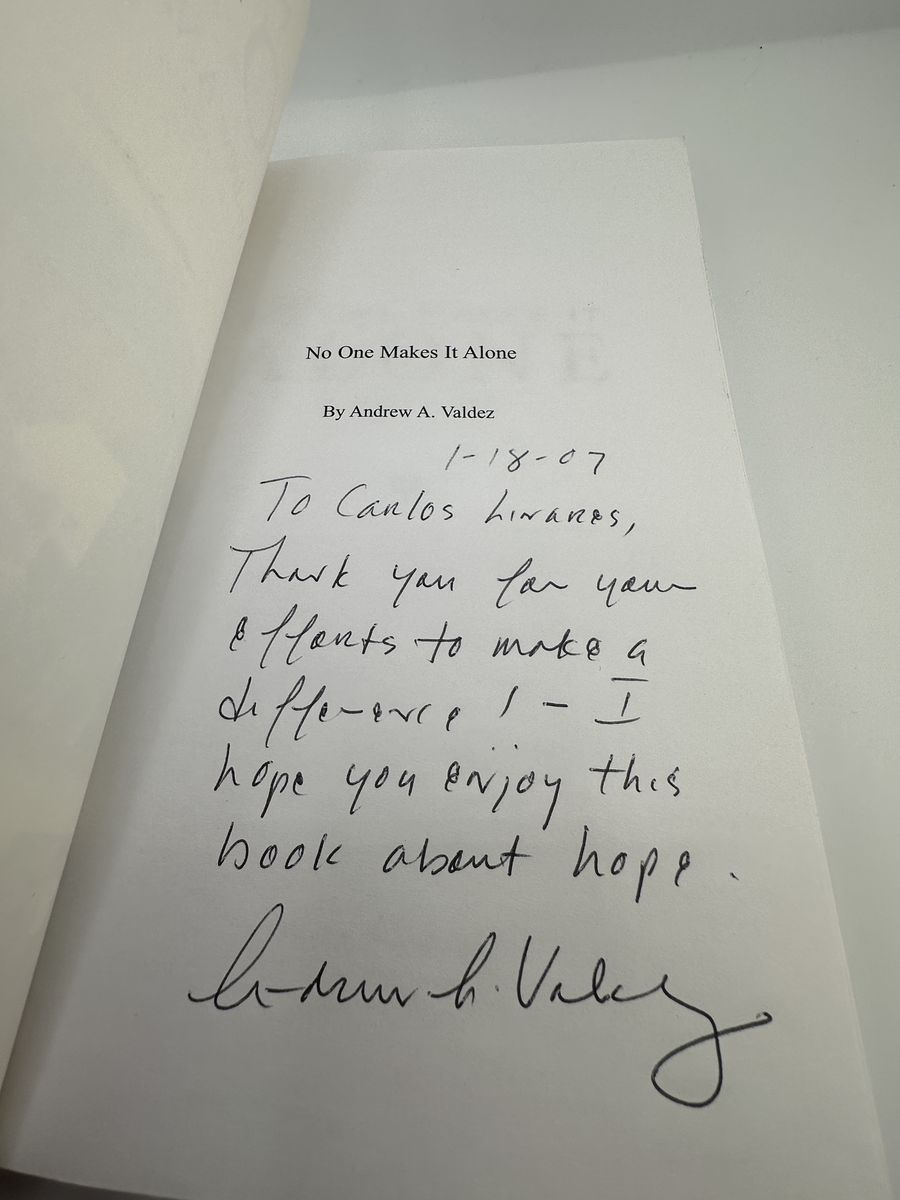 No One Makes It Alone
By Andrew A. Valdez
1-18-07
To Carlos Linares,
Thank you for your
efforts to make a
difference! - I
hope you enjoy this
book about hope.
Andrew A. Valdez